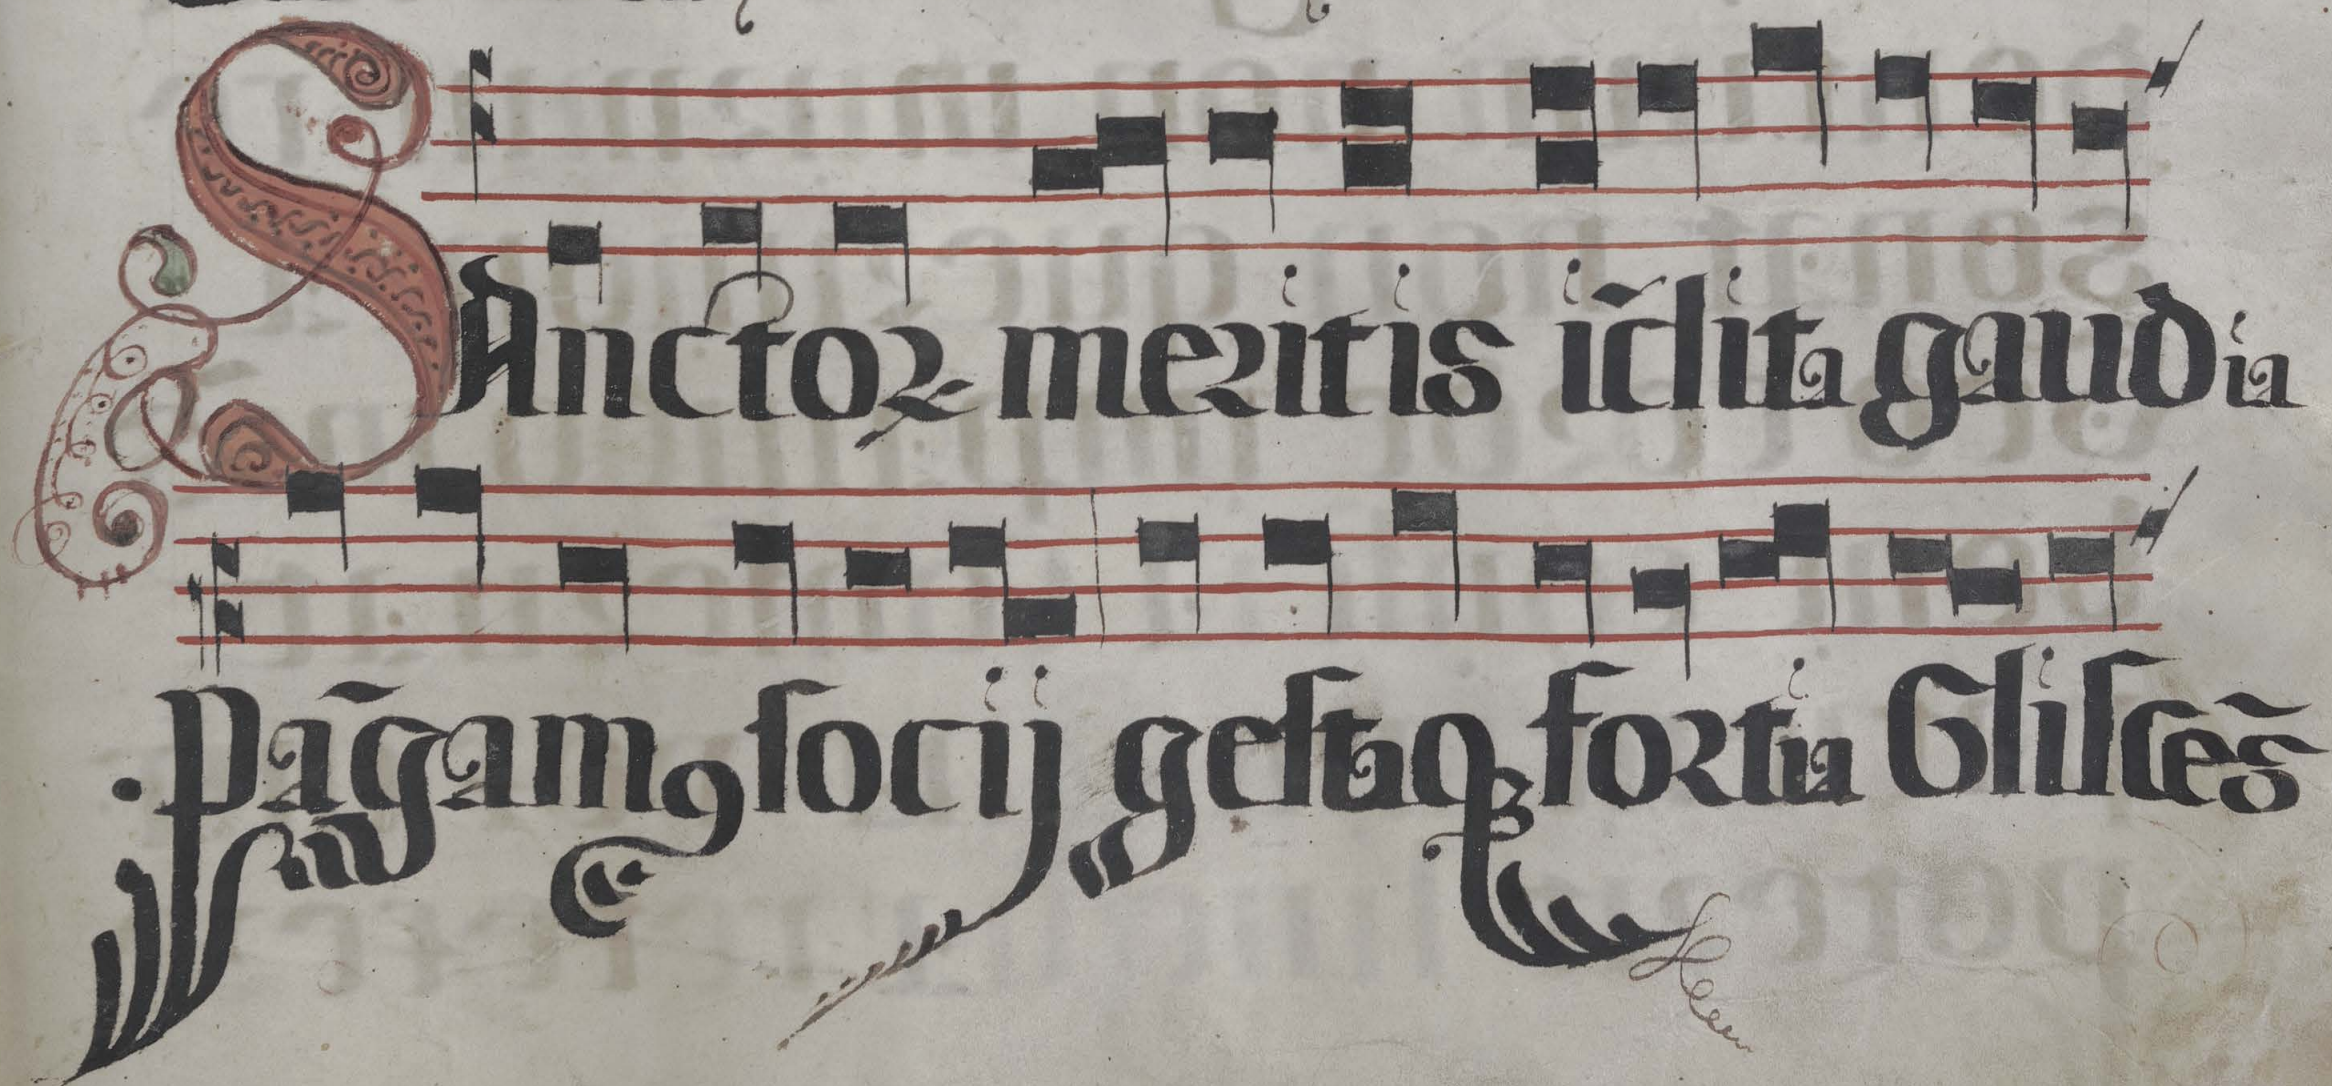 SAnctoꝝ meritis ic̃lita gaudia
Pãgamꝯ ſocij geſtaqꝫ fortia Gliſcẽs